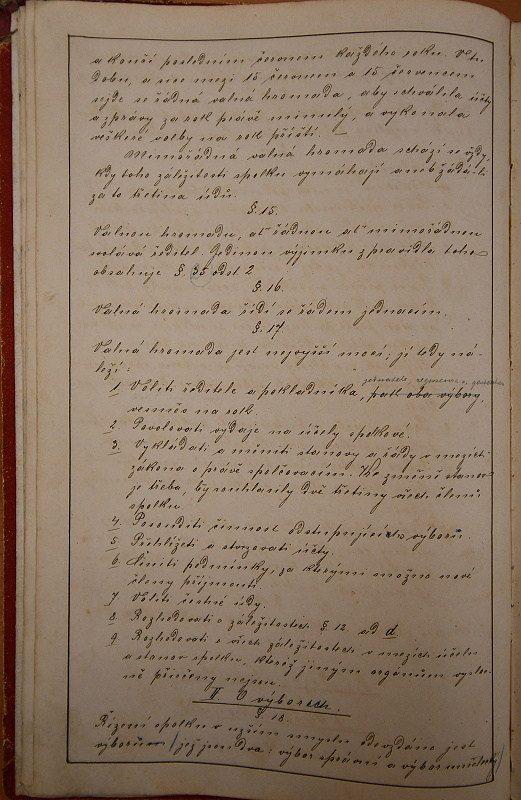 a končí posledním červnem každého roku. V tu
dobu, a sice mezi 15. červnem a 15. červencem
sejde se řádná valná hromada, aby schválila účty
a zprávy za rok právě minulý, a vykonala
veškeré volby na rok příští. —
Mimořádná valná hromada schází se vždy,
kdy toho záležitosti spolku vymáhají aneb žádá-li
za to třetina údů.
§. 15.
Valnou hromadu, ať řádnou ať mimořádnou
svolává ředitel. Jedinou výjimku z pravidla toho
obsahuje §. 35 odst 2
§. 16.
Valná hromada řídí se řádem jednacím.
§. 17
Valná hromada jest nejvyšší moci; jí tedy ná-
leží:
jednatele,
1 Voliti ředitele a pokladníka, pak oba výbory,
vesměs na rok.
2. Povolovati výdaje na účely spolkové.
3. Vykládati a měniti stanovy a řády v mezích
zákona o právě spolčovacím. Ke změně stanov
je třeba, by souhlasily dvě třetiny všech členů
spolku.
4. Posouditi činnost odstupujících výborů.
5. Přehlížeti a stvrzovati účty.
6. Činiti podmínky, za kterými možno nové
členy přijmouti.
7. Voliti čestné údy.
8. Rozhodovati o záležitostech §. 12. ad d.
9. Rozhodovati o všech záležitostech v mezích účelu
a stanov spolku, kteréž jiným orgánům výslov-
ně přiřčeny nejsou.
II. O výborech.
§. 18.
Řízení spolku v užším smyslu odevzdáno jest
výborům (jež jsou dva: výbor správní a výbor umělecký)